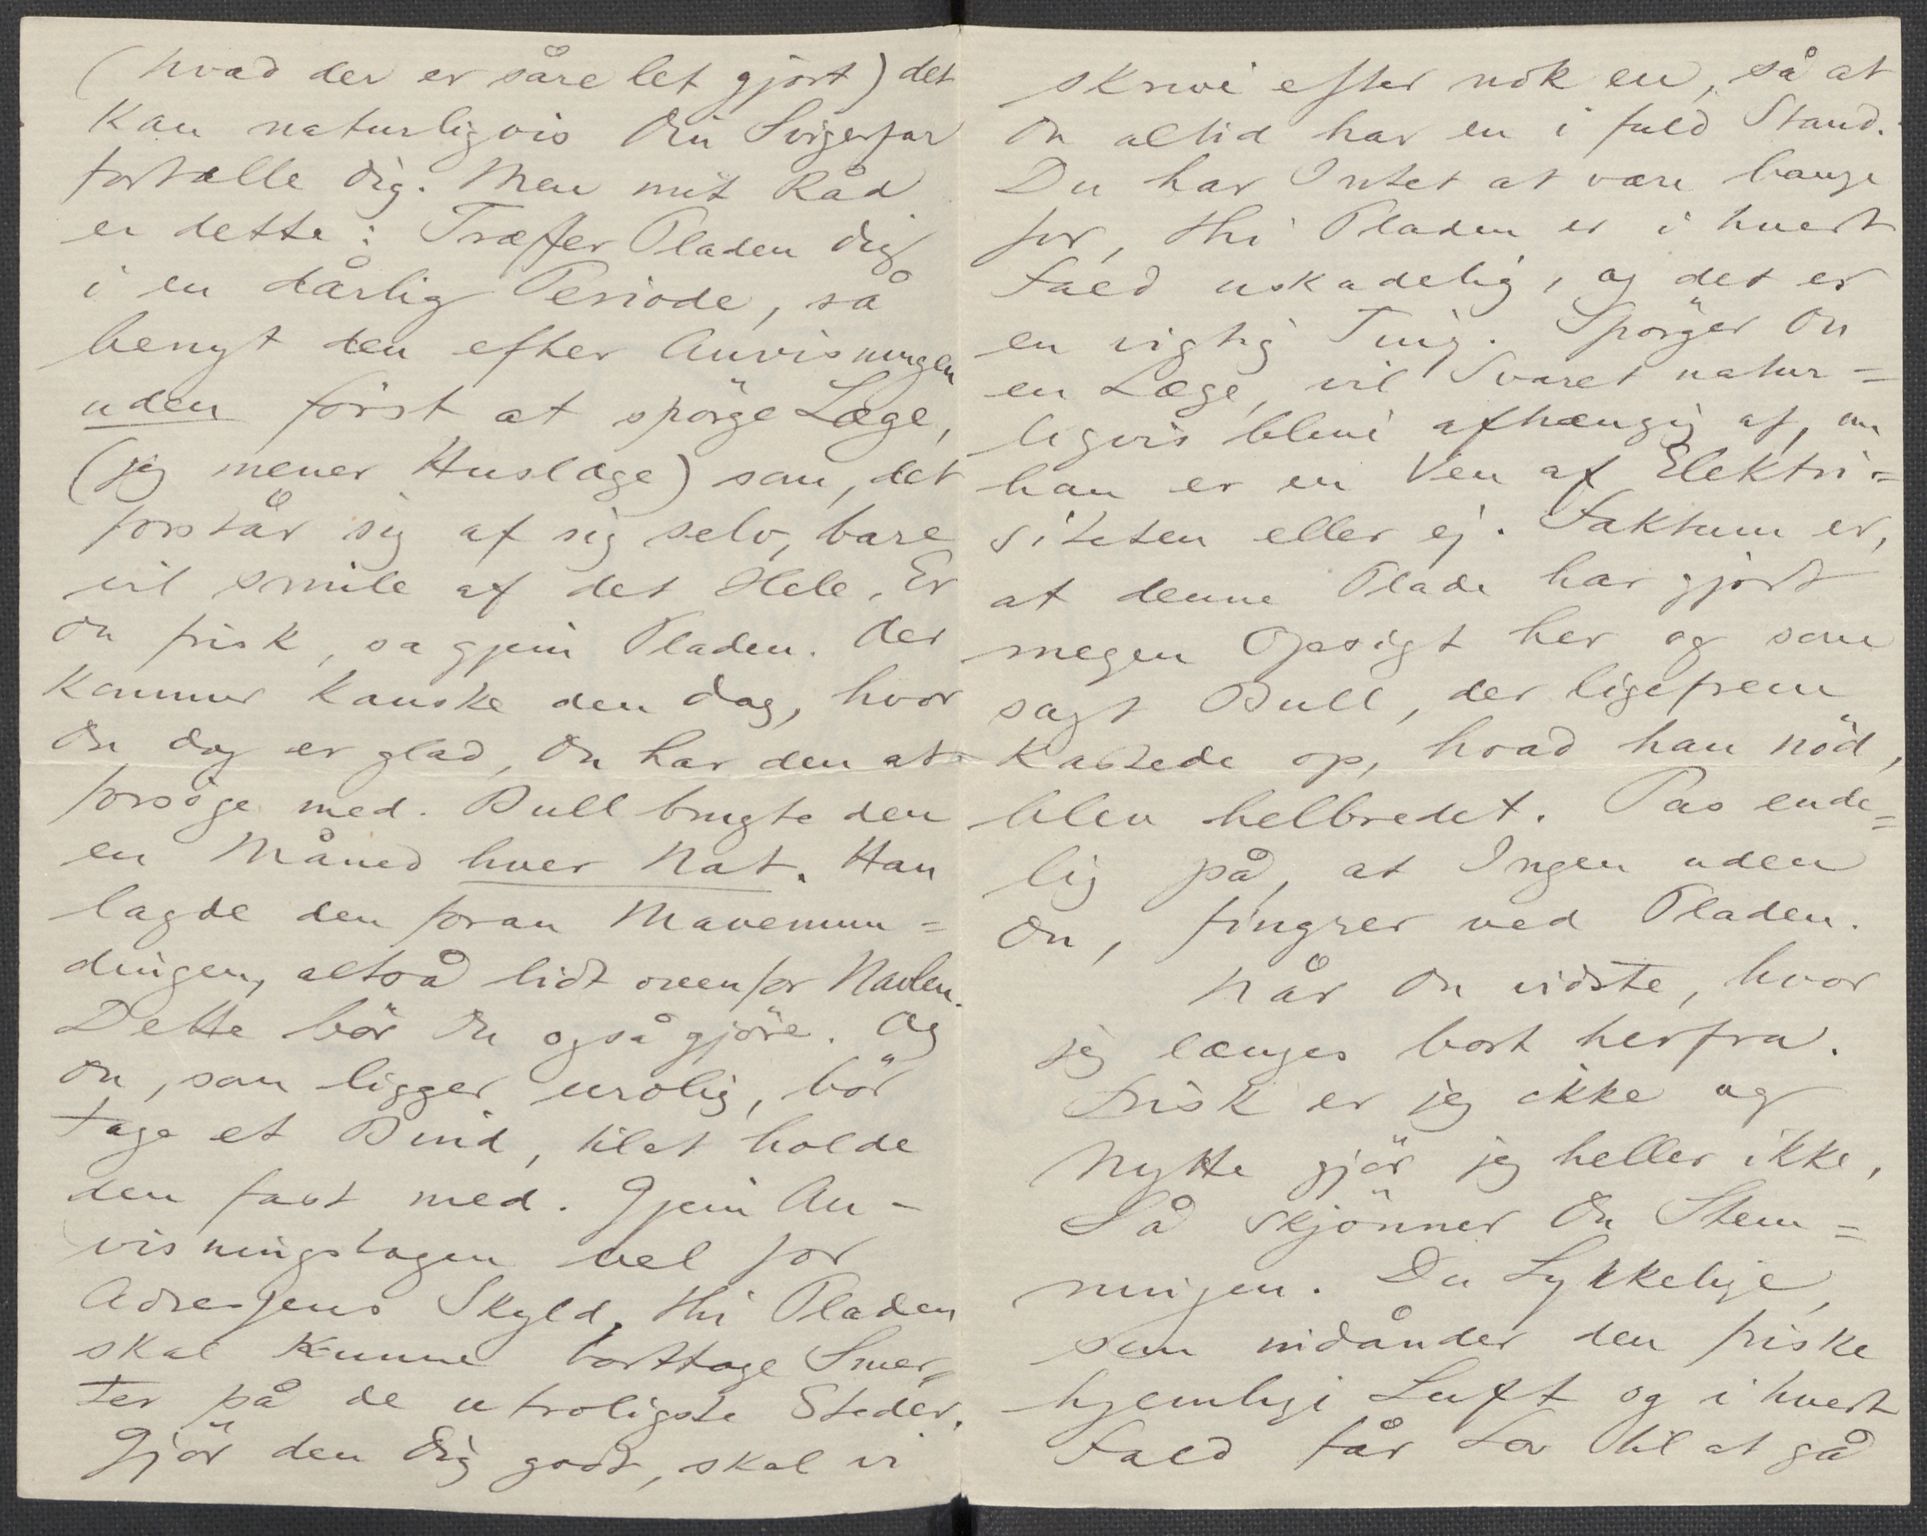 (hvad der er såre let gjort) det
kan naturligvis Din Svigerfar
fortælle Dig. Men mit Råd
er dette: Træffer Pladen Dig
i en dårlig Periode, så
benyt den efter Anvisningen
uden först at spörge Læge,
(jeg mener Huslæge) som, det
forstår sig af sig selv, bare
vil smile af det Hele. Er
Du frisk, så gjem Pladen. Der
kommer kanske den Dag, hvor
Du dog er glad, Du har den at
forsöge med. Bull brugte den
en Måned hver Nat. Han
lagde den foran Mavemun=
dingen, altså lidt ovenfor Navlen.
Dette bör Du også gjöre. Og
Du, som ligger urolig, bör
tage et Bind, til at holde
den fast med. Gjem An-
visningslagen vel for
Adressens Skyld, thi Pladen
skal kunne borttage Smer=
ter på de utroligste Steder.
Gjör den Dig godt, skal vi
skrive efter nok en, så at
Du altid har en i fuld Stand.
Du har Intet at være bange
for, thi Pladen er i hvert
Fald uskadelig, og det er
en vigtig Ting. Spörger Du
en Læge, vil Svaret natur=
ligvis blive afhængig af, om
han er en Ven af Elektri=
siteten eller ej. Faktum er,
at denne Plade har gjort
megen Opsigt her og som
sagt Bull, der ligefrem
kastede op, hvad han nöd,
blev helbredet. Pas ende=
lig på, at Ingen uden
Du, fingrer ved Pladen.
Når Du vidste, hvor
jeg længes bort herfra.
Frisk er jeg ikke og
Nytte gjör jeg heller ikke.
Så skjönner Du Stem=
ningen. Du Lykkelige,
som indånder den friske
hjemlige Luft og i hvert
Fald får Lov til at gå